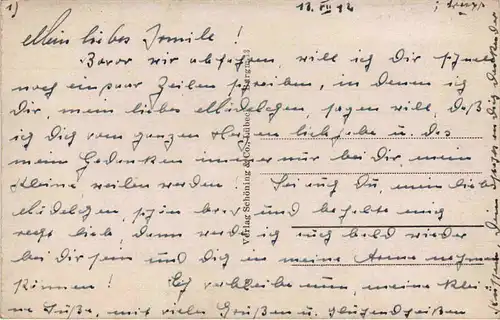 1) 18. VII 42
Mein liebes Irmile!
Bevor wir abfahren, will ich Dir schnell
noch ein paar Zeilen schreiben, in denen ich
Dir, mein liebes Mädelchen sagen will, daß
ich Dich vom ganzen Herzen lieb habe u. das
meine Gedanken immer nur bei Dir, mein
Kleine weilen werden. Sei auch Du, mein liebes
Mädelchen, schön brav und behalte mich
recht lieb, dann werde ich auch bald wieder
bei Dir sein und Dich in meine Arme nehmen
können! Ich verbleibe nun, meine klei-
ne Süße, mit vielen Grüßen u.
Verlag Schöning & Co., Lübeck